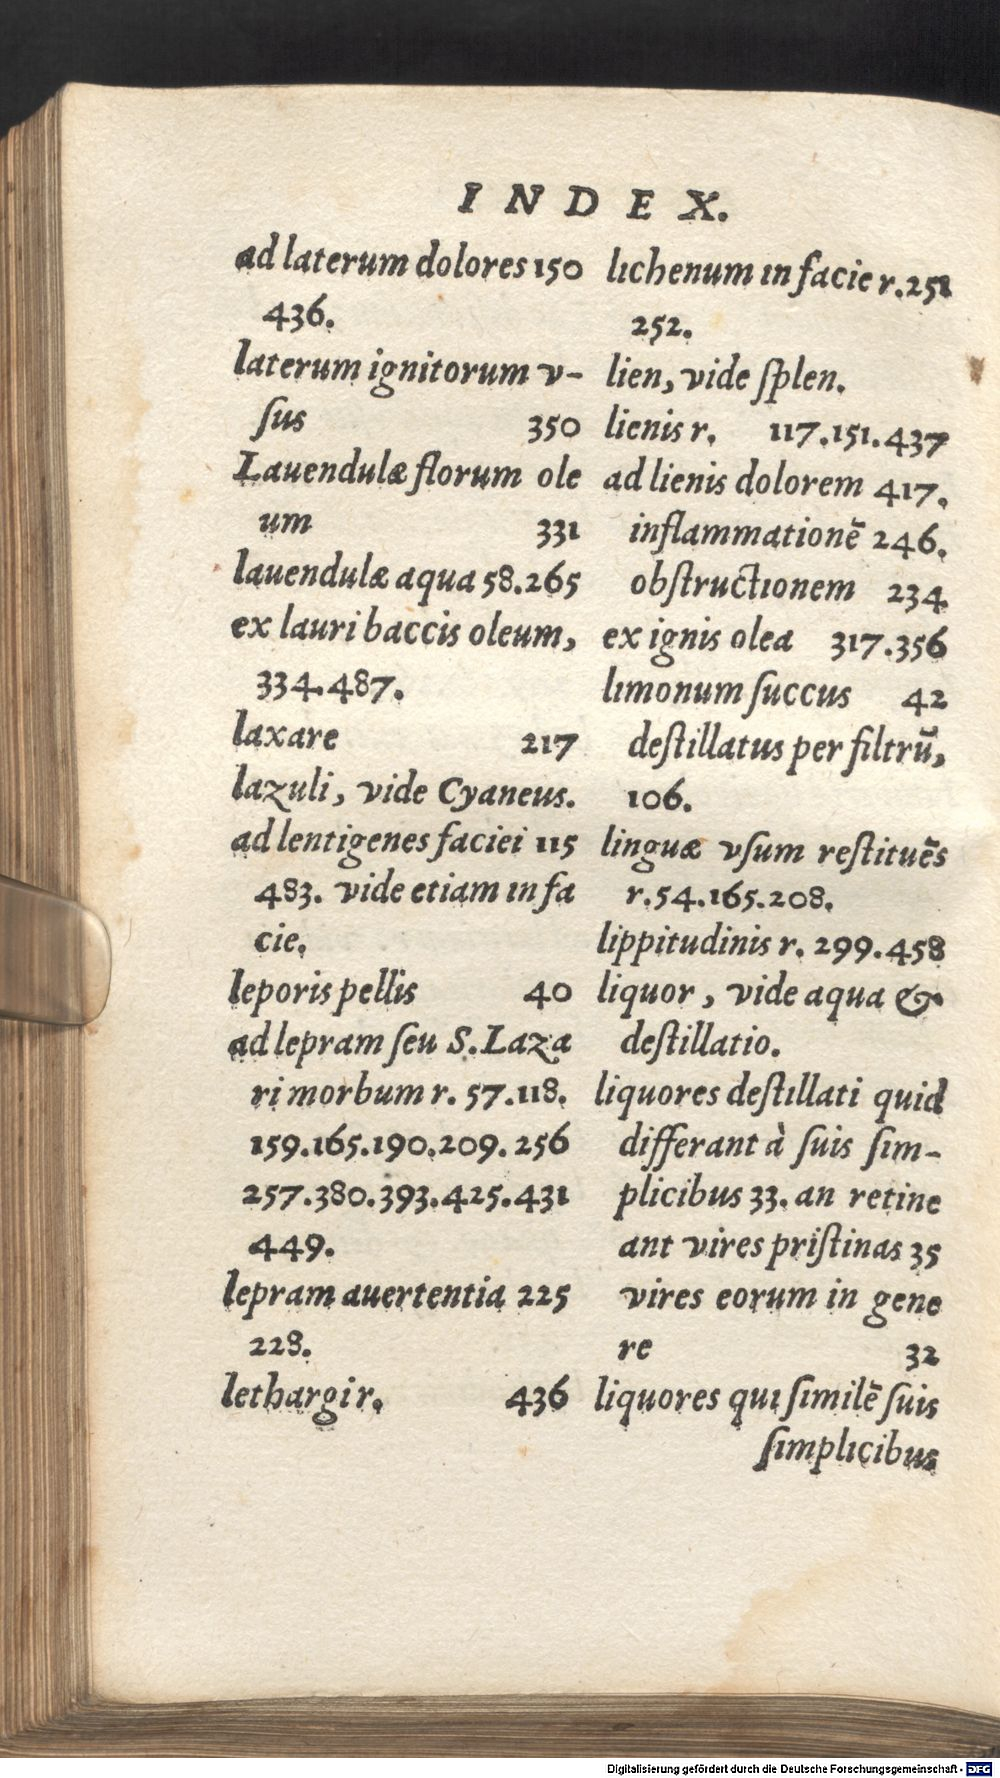 INDEX.
ad laterum dolores 150
436.
laterum ignitorum v-
ſus 350
Lauendulæ florum ole
um 331
lauendulæ aqua 58.265
ex lauri baccis oleum,
334.487.
laxare 217
lazuli, vide Cyaneus.
ad lentigenes faciei 115
483. vide etiam in fa
cie.
leporis pellis 40
ad lepram ſeu S. Laza
ri morbum r. 57.118.
159.165.190.209.256
257.380.393.425.431
449.
lepram auertentia 225
228.
lethargi r. 436
lichenum in facie r. 251
252.
lien, vide ſplen.
lienis r. 117.151.437
ad lienis dolorem 417.
inflammationē 246.
obſtructionem 234
ex ignis olea 317.356
limonum ſuccus 42
deſtillatus per filtrū,
106.
linguæ vſum reſtituēs
r. 54.165.208.
lippitudinis r. 299.458
liquor, vide aqua &
deſtillatio.
liquores deſtillati quid
differant à ſuis ſim-
plicibus 33. an retine
ant vires priſtinas 35
vires eorum in gene
re 32
liquores qui ſimilē ſuis
ſimplicibus
Digitalisierung gefördert durch die Deutsche Forschungsgemeinschaft - DFG